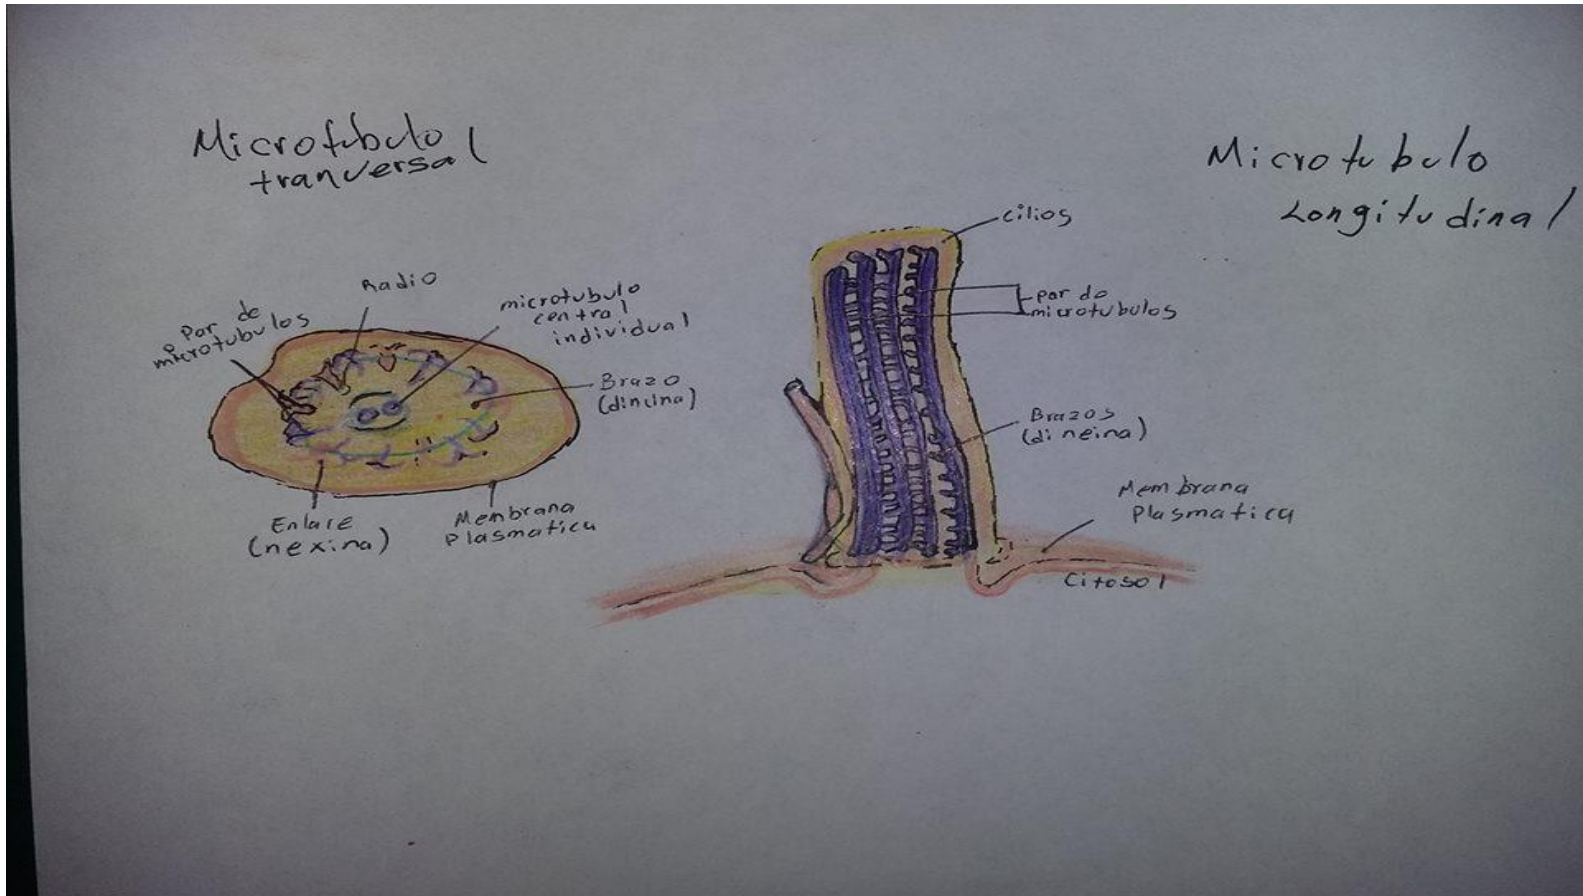 Microtubulo
tranversal
Radio
Par de
microtubulos
microtubulo
central
individual
Brazo
(dineina)
Enlace
(nexina)
Membrana
Plasmatica
Microtubulo
Longitudinal
cilios
par de
microtubulos
Brazos
(dineina)
Membrana
Plasmatica
Citosol